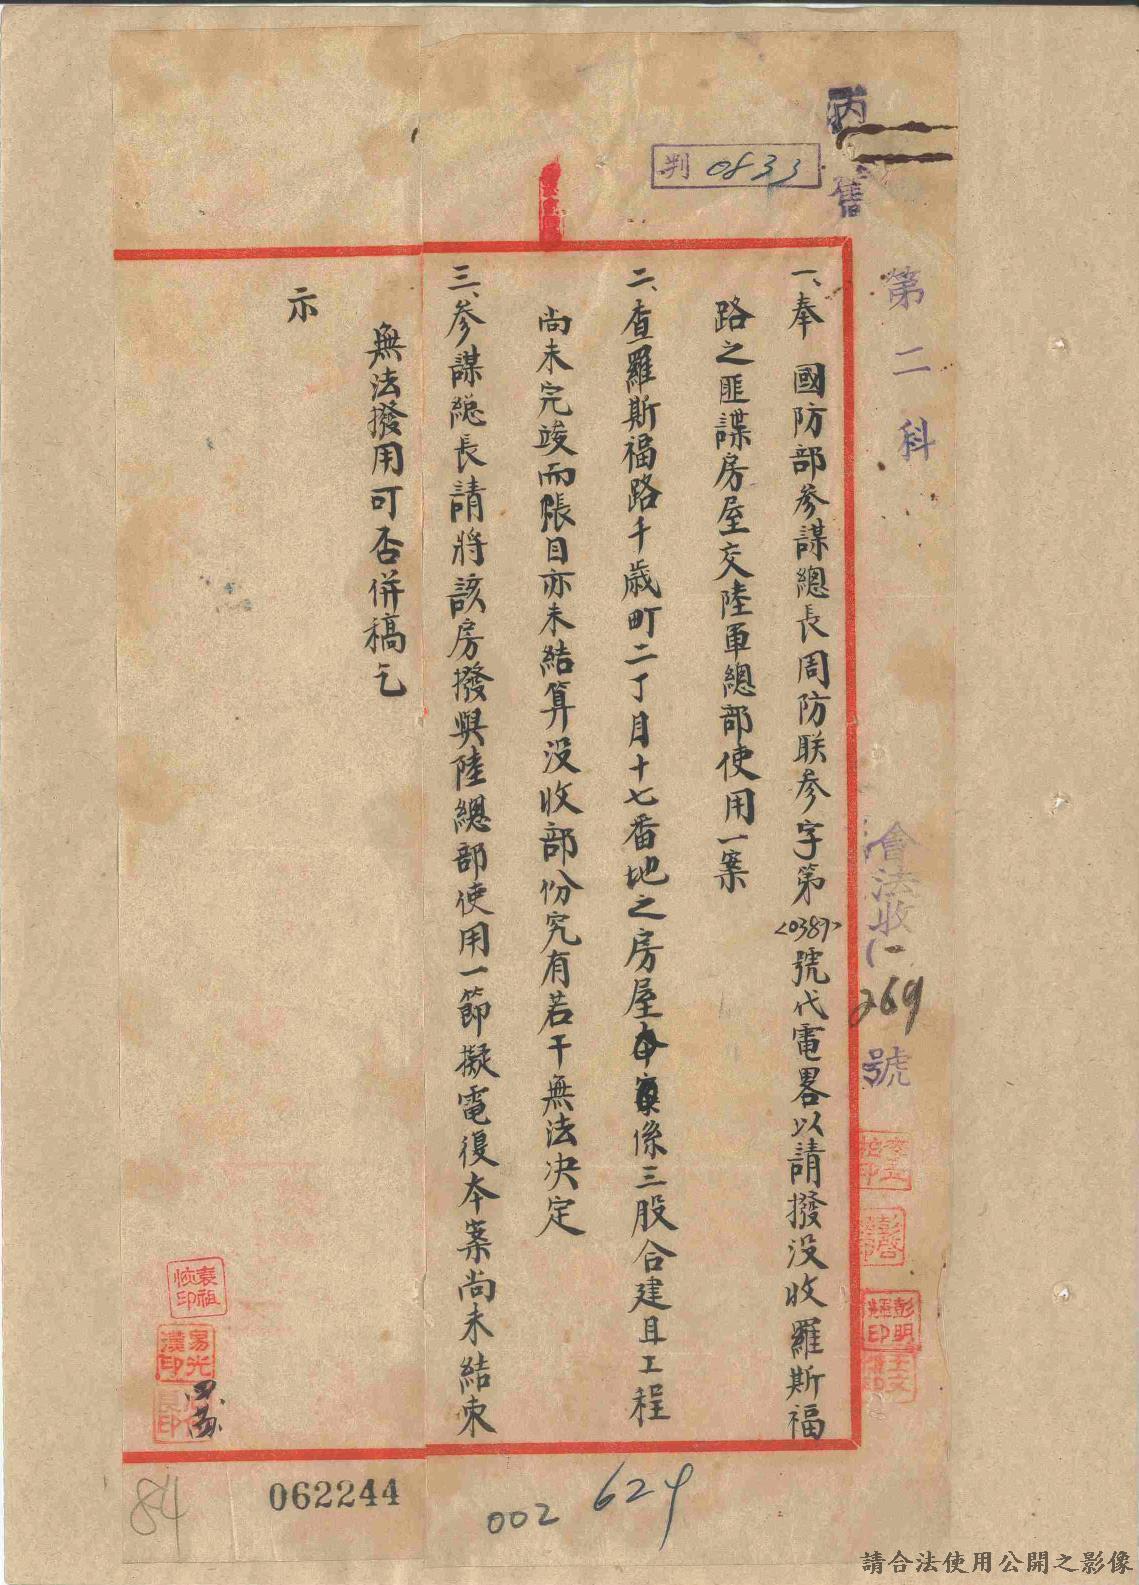 丙
判 0833
第二科
會法收(一
269
號
一、奉 國防部參謀總長周防联參字第<0387>號代電畧以請撥没收羅斯福
路之匪諜房屋交陸軍總部使用一案
二、查羅斯福路千歲町二丁目十七番地之房屋本案係三股合建且工程
尚未完竣而賬目亦未結算没收部份究有若干無法决定
三、參謀總長請將該房撥與陸總部使用一節擬電復本案尚未結束
無法撥用可否併稿乞
示
袁祖恢印
易光漢印
彭明輝印
84
062244
002
624
請合法使用公開之影像